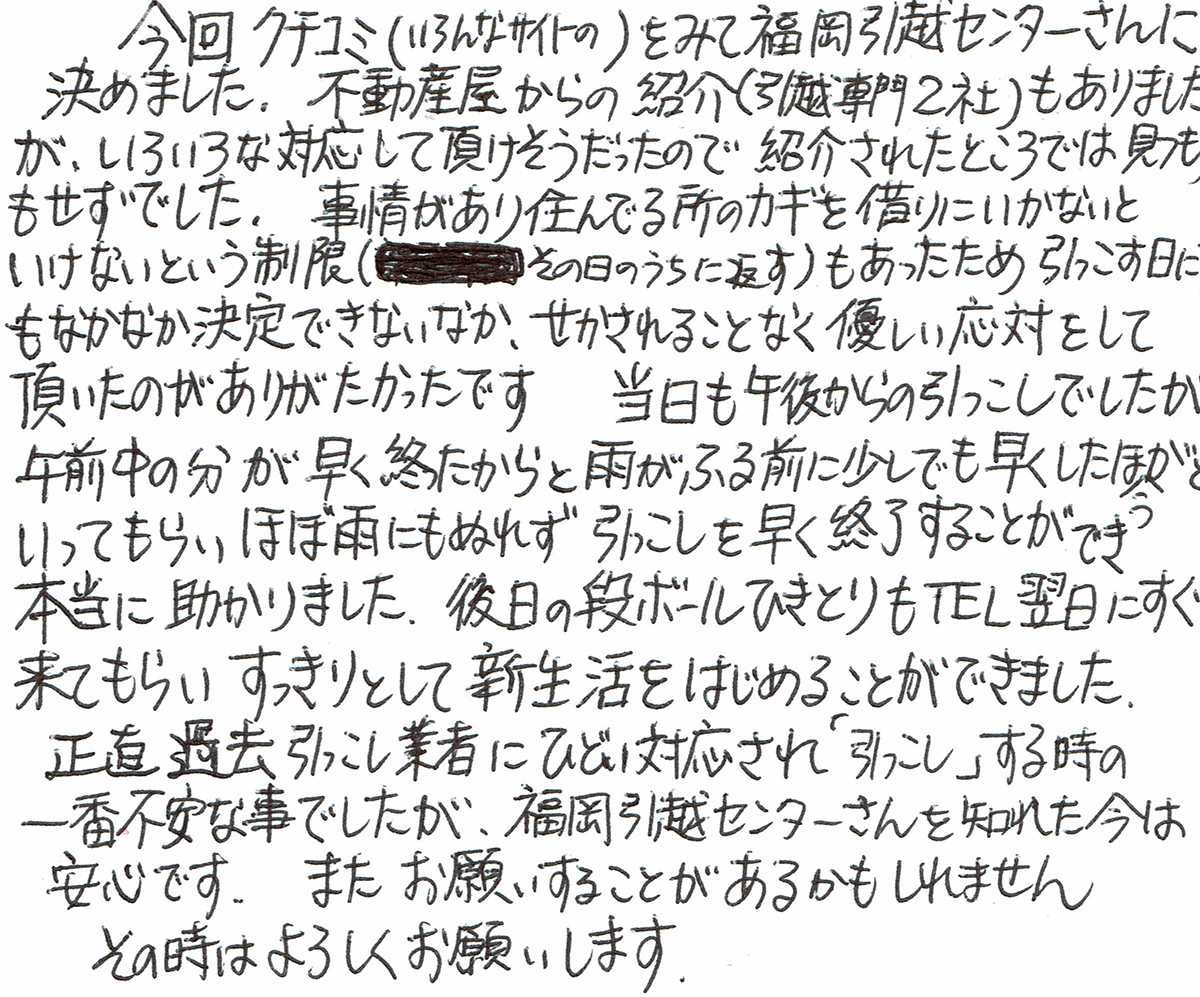 今回 クチコミ(いろんなサイトの)をみて福岡引越センターさんに
決めました. 不動産屋からの 紹介(引越専門2社)もありました
が、いろいろな対応して頂けそうだったので 紹介されたところでは見つも
もせずでした. 事情があり住んでる所のカギを借りにいかないと
いけないという制限( その日のうちに返す)もあったため 引っこす日に
もなかなか決定できないなか、せかされることなく優しい応対をして
頂いたのがありがたかったです 当日も午後からの引っこしでしたが
午前中の分が早く終ったからと雨がふる前に少しでも早くしたほうがと
いってもらい ほぼ雨にもぬれず 引っこしを早く終了することができ
本当に助かりました. 後日の段ボールひきとりもTEL翌日にすぐ
来てもらい すっきりとして新生活をはじめることができました.
正直 過去 引っこし業者にひどい対応され「引っこし」する時の
一番不安な事でしたが、福岡引越センターさんを知れた今は
安心です. また お願いすることがあるかもしれません
その時はよろしくお願いします.